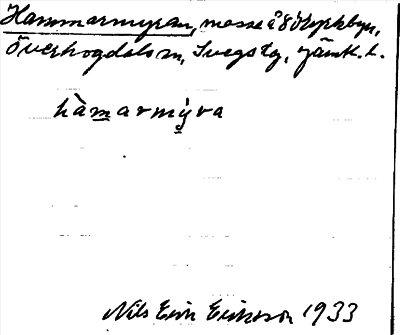 Hammarmyran, mosse i S Kyrkbyn,
Överhogdals sn, Svegs tg, Jämtl. l.
hàmarmỳra
Nils Eric Ericsson 1933